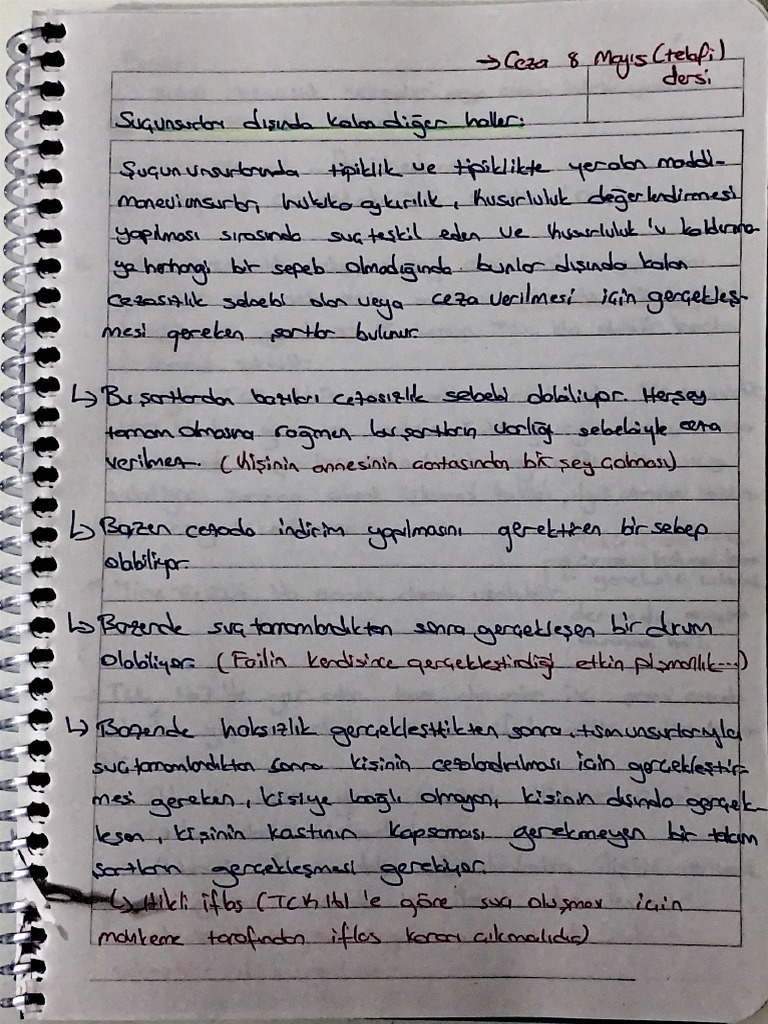 → Ceza 8 Mayıs (telafi)
dersi
Suç unsurları dışında kalan diğer haller:
Suçun unsurlarında tipiklik ve tipiklikte yer alan maddi-
manevi unsurlar, hukuka aykırılık, kusurluluk değerlendirmesi
yapılması sırasında suç teşkil eden ve kusurluluk'u kaldırma-
ya herhangi bir sepeb olmadığında bunlar dışında kalan
cezasızlık sebebi olan veya ceza verilmesi için gerçekleş-
mesi gereken şartlar bulunur.
↳ Bu şartlardan bazıları cezasızlık sebebi olabiliyor. Herşey
tamam olmasına rağmen bu şartların varlığı sebebiyle ceza
verilmez. (Kişinin annesinin çantasından bir şey çalması)
↳ Bazen cezada indirim yapılmasını gerektiren bir sebep
olabiliyor.
↳ Bazende suç tamamlandıktan sonra gerçekleşen bir durum
olabiliyor. (Failin kendisince gerçekleştirdiği etkin pişmanlık...)
↳ Bazende haksızlık gerçekleştikten sonra, tüm unsurlarıyla
suç tamamlandıktan sonra kişinin cezalandırılması için gerçekleştir-
mesi gereken, kişiye bağlı olmayan, kişinin dışında gerçek-
leşen, kişinin kastının kapsaması gerekmeyen bir takım
şartların gerçekleşmesi gerekiyor.
↳ Hileli iflas (TCK 161'e göre suç oluşması için
mahkeme tarafından iflas kararı çıkmalıdır)